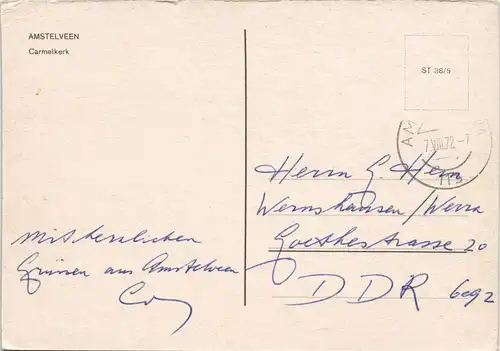 AMSTELVEEN
Carmelkerk
ST 38/5
AM
7.VIII.72.-7
Herrn G. Hein
Wernshausen/Werra
Goethestrasse 20
DDR 6092
Mit herzlichen
Grüssen aus Amstelveen